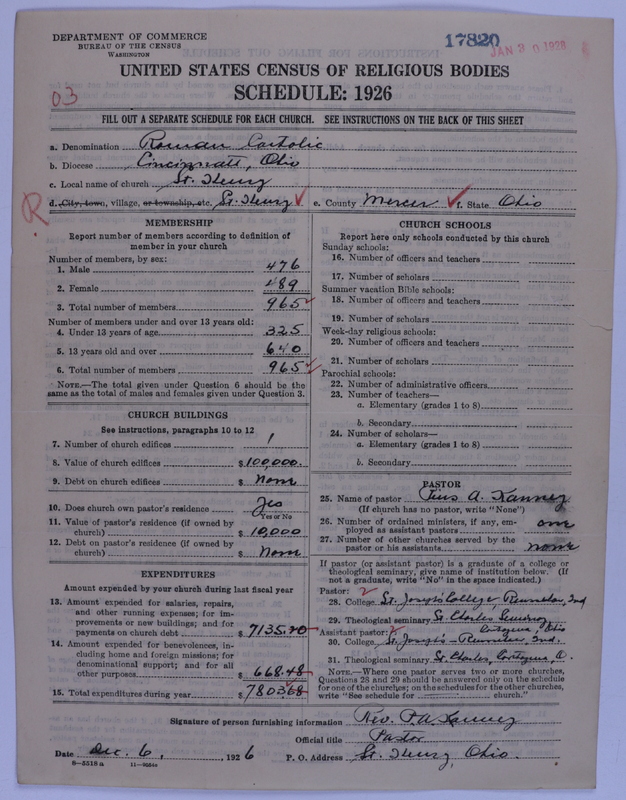 DEPARTMENT OF COMMERCE
BUREAU OF THE CENSUS
WASHINGTON
17820
JAN 30 1928
UNITED STATES CENSUS OF RELIGIOUS BODIES
03
SCHEDULE: 1926
FILL OUT A SEPARATE SCHEDULE FOR EACH CHURCH. SEE INSTRUCTIONS ON THE BACK OF THIS SHEET
a. Denomination Roman Catholic
b. Diocese Cincinnati, Ohio
c. Local name of church St. Henry
R
d. City, town, village, or township, etc. St. Henry e. County Mercer f. State Ohio
MEMBERSHIP
Report number of members according to definition of
member in your church
Number of members, by sex:
1. Male 476
2. Female 489
3. Total number of members 965
Number of members under and over 13 years old:
4. Under 13 years of age 325
5. 13 years old and over 640
6. Total number of members 965
NOTE.—The total given under Question 6 should be the
same as the total of males and females given under Question 3.
CHURCH BUILDINGS
See instructions, paragraphs 10 to 12
7. Number of church edifices 1
8. Value of church edifices $ 100,000.
9. Debt on church edifices $ None
10. Does church own pastor's residence Yes
Yes or No
11. Value of pastor's residence (if owned by
church) $ 10,000
12. Debt on pastor's residence (if owned by
church) $ None
EXPENDITURES
Amount expended by your church during last fiscal year
13. Amount expended for salaries, repairs,
and other running expenses; for im-
provements or new buildings; and for
payments on church debt $ 7135.20
14. Amount expended for benevolences, in-
cluding home and foreign missions; for
denominational support; and for all
other purposes $ 668.48
15. Total expenditures during year $ 7803.68
CHURCH SCHOOLS
Report here only schools conducted by this church
Sunday schools:
16. Number of officers and teachers
17. Number of scholars
Summer vacation Bible schools:
18. Number of officers and teachers
19. Number of scholars
Week-day religious schools:
20. Number of officers and teachers
21. Number of scholars
Parochial schools:
22. Number of administrative officers
23. Number of teachers—
a. Elementary (grades 1 to 8)
b. Secondary
24. Number of scholars—
a. Elementary (grades 1 to 8)
b. Secondary
PASTOR
25. Name of pastor A.
(If church has no pastor, write "None")
26. Number of ordained ministers, if any, em-
ployed as assistant pastors one
27. Number of other churches served by the
pastor or his assistants none
If pastor (or assistant pastor) is a graduate of a college or
theological seminary, give name of institution below. (If
not a graduate, write "No" in the space indicated.)
Pastor:
28. College St. Joseph's College, Ind
29. Theological seminary St. Charles Seminary
Assistant pastor: Ohio
30. College St. Joseph's - Ind.
31. Theological seminary St. Charles, O.
NOTE.—Where one pastor serves two or more churches,
Questions 28 and 29 should be answered only on the schedule
for one of the churches; on the schedules for the other churches,
write "See schedule for church."
Signature of person furnishing information Rev.
Official title Pastor
Date Dec. 6, 1926 P. O. Address St. Henry, Ohio.
8-5518a